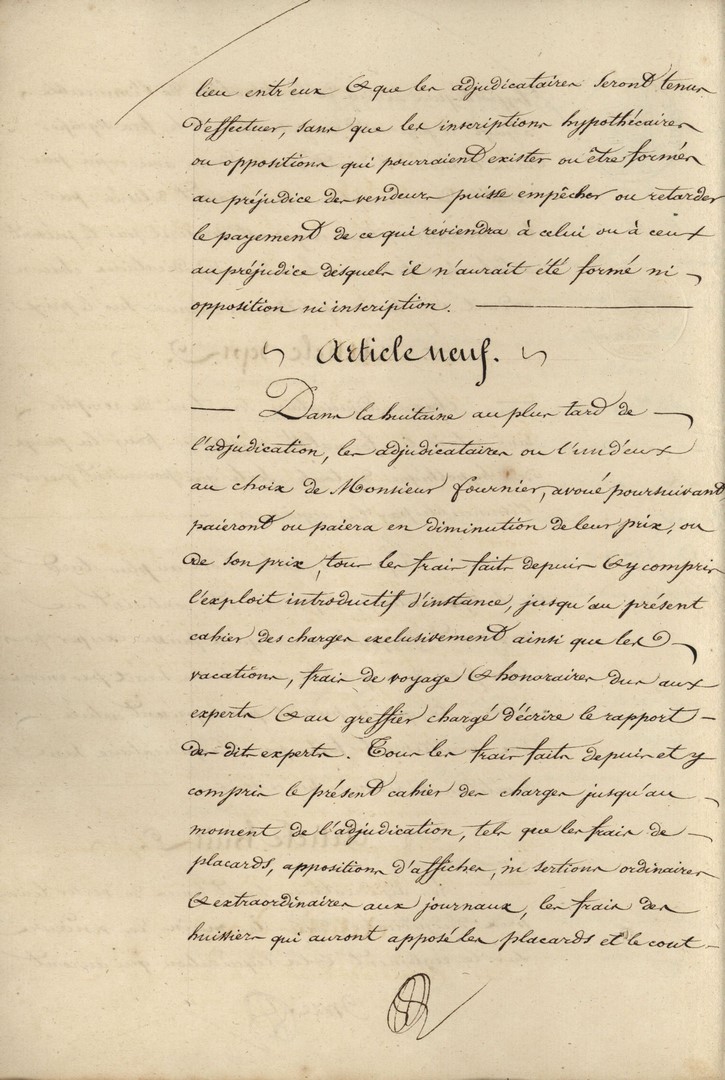 lieu entr'eux & que les adjudicataires seront tenus
d'effectuer, sans que les inscriptions hypothécaires
ou oppositions qui pourraient exister ou être formés
au préjudice des vendeurs puisse empêcher ou retarder
le payement de ce qui reviendra à celui ou à ceux
au préjudice desquels il n'aurait été formé ni
opposition ni inscription.
Article neuf.
Dans la huitaine au plus tard de
l'adjudication, les adjudicataires ou l'un d'eux
au choix de Monsieur fournier, avoué poursuivant,
paieront ou paiera en diminution de leur prix, ou
de son prix, tous les frais faits depuis & y compris
l'exploit introductif d'instance, jusqu'au présent
cahier des charges exclusivement ainsi que les
vacations, frais de voyage & honoraires dus aux
experts & au greffier chargé d'écrire le rapport
des dits experts. Tous les frais faits depuis et y
compris le présent cahier des charges jusqu'au
moment de l'adjudication, tels que les frais de
placards, appositions d'affiches, insertions ordinaires
& extraordinaires aux journaux, les frais des
huissiers qui auront apposé les placards et le cout